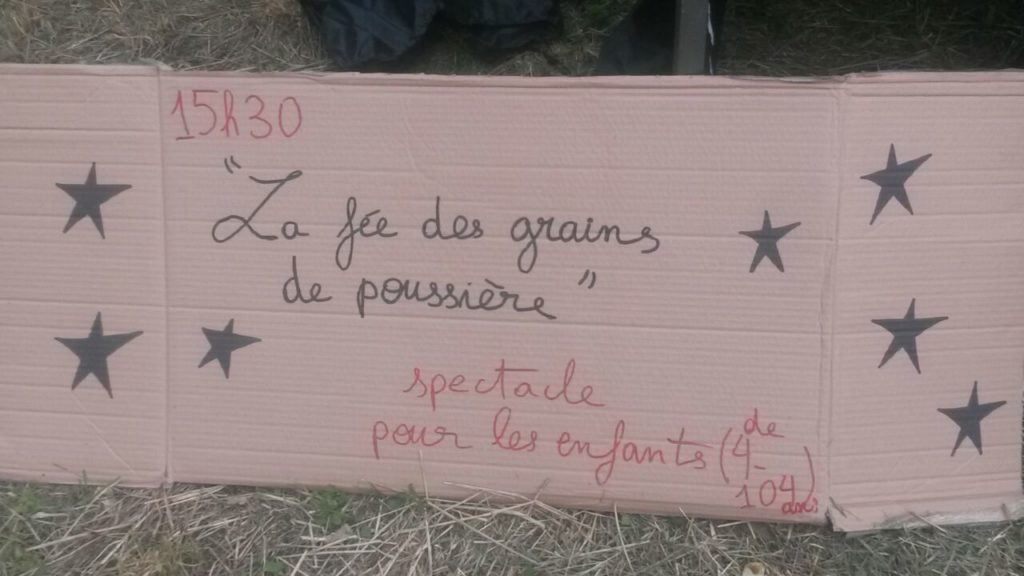 15h30
"La fée des grains
de poussière"
spectacle
pour les enfants (de
4-
104 ans)